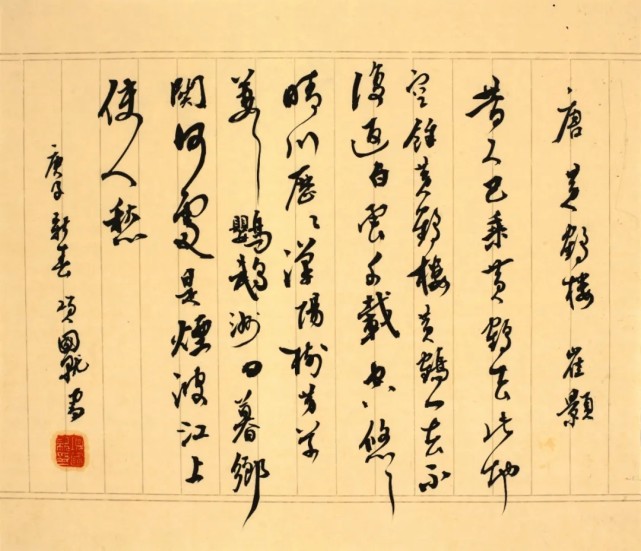 唐 黄鶴樓 崔顥
昔人已乘黄鶴去此地
空餘黄鶴樓黄鶴一去不
復返白雲千載空悠〻
晴川歷〻漢陽樹芳草
萋〻鸚鵡洲日暮鄉
関何處是煙波江上
使人愁
庚子新春 項國 書